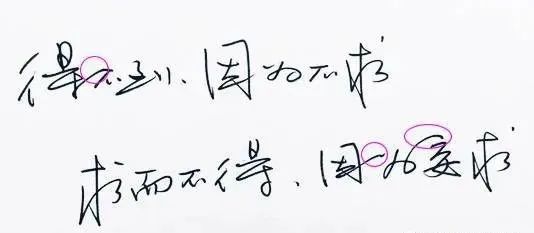 得不到、因为不求
求而不得、因为要求